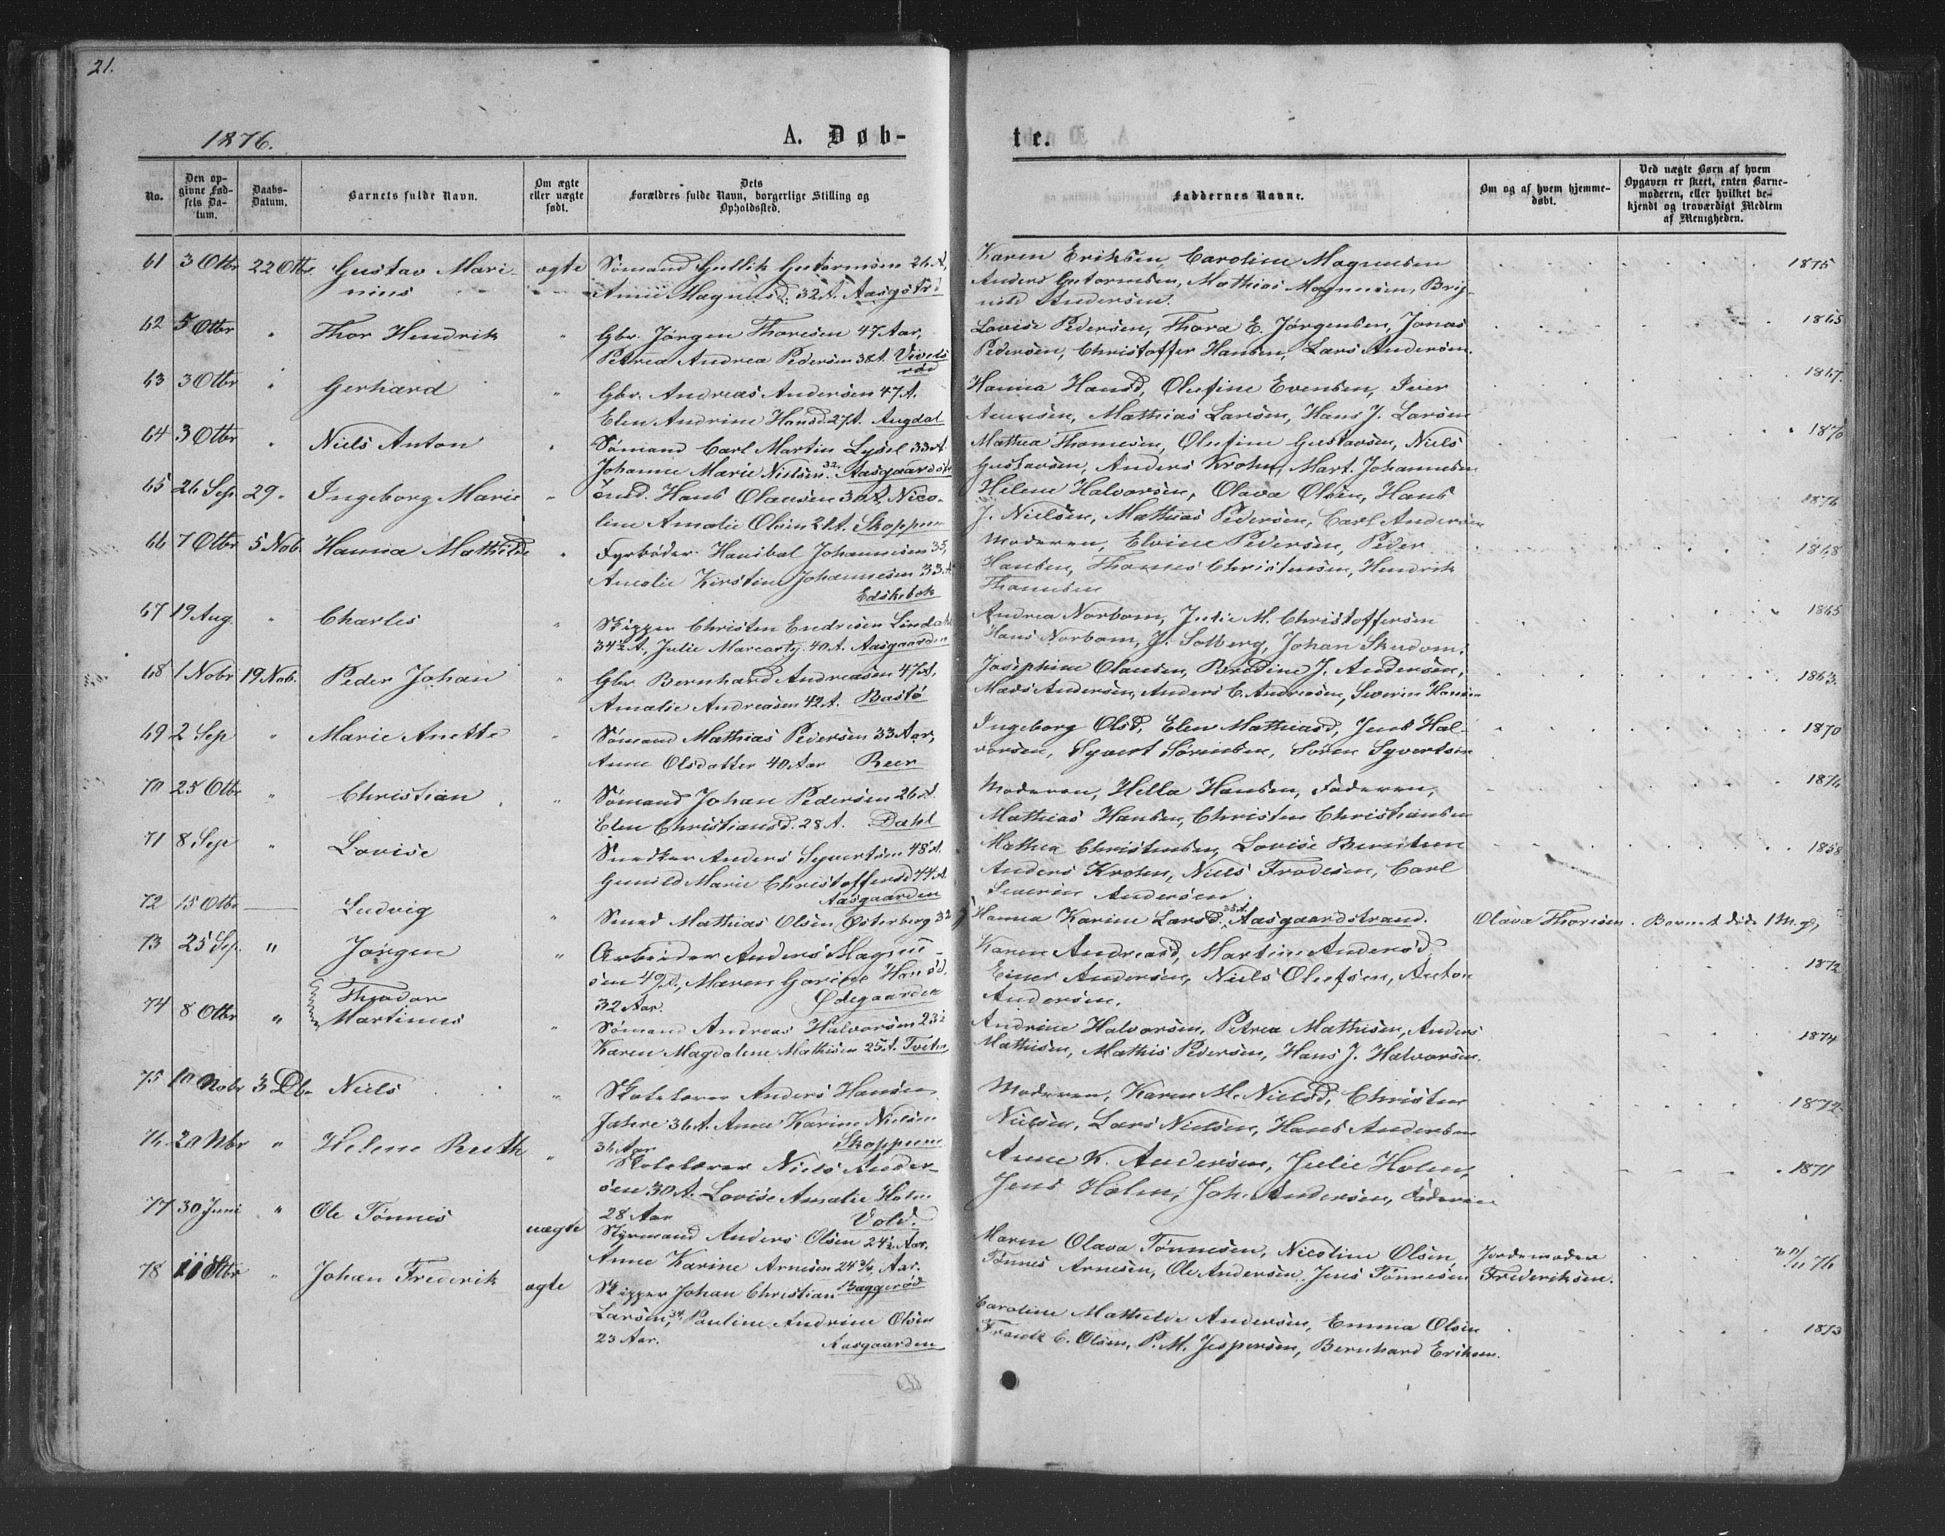 21.
1876.
A. Døb-
te.
No.
Den op-
givne Fød-
sels Da-
tum.
Daabs-
Datum.
Barnets fulde Navn.
Om ægte
eller uægte
født.
Dets
Forældres fulde Navn, borgerlige Stilling og
Opholdssted.
Faddernes Navne.
Om og af hvem hjemme-
døbt.
Ved uægte Børn af hvem
Opgaven er skeet, enten Barne-
moderen, eller hvilket be-
kjendt og troværdigt Medlem
af Menigheden.
61 3 Otbr 22 Otbr. Gustav Mari- ægte Sømand Gullik Gutormsen 26 A, Karen Eriksen, Caroline Magnusen 1875
nius Anne Magnusd. 32 A. Aasgstrd Anders Gutormsen, Mathias Magnusen, Brig-
nild Andersen.
62 5 Otbr " Thor Hendrik " Gbr. Jørgen Thoresen 47 Aar, Lovise Pedersen, Thora E. Jørgensen, Jonas 1865
Petrea Andrea Pedersen 38 A. Vivels- Pedersen, Christoffer Hansen, Lars Andersen.
rød
63 3 Otbr " Gerhard " Gbr. Andreas Andersen 47 A. Hanna Hansd, Olufine Evensen, Iver 1867.
Elen Andrine Hansd 27 A. Augdal Mathias Larsen, Hans J. Larsen
64 3 Otbr " Niels Anton " Sømand Carl Martin Lysel 33 A. Mathea Thomesen, Olufine Gustavsen, Niels 1870
Johanne Marie Nielsen 32. Aasgaardstr Gustavsen, Anders Krohn, Mart. Johannesen
65 26 Sep 29. Ingeborg Marie " Hans Olausen 30 A, Nico- Helene Halvorsen, Olava Olsen, Hans 1876
line Amalie Olsen 21 A. Skoppum J. Nielsen, Mathias Pedersen, Carl Andersen
66 7 Otbr 5 Nob. Hanna Mathilde " Fyrbøder Hanibal Johannesen 35, Moderen, Elvine Pedersen, Peder 1868
Amalie Kirstine Johannesen 33 A. Hansen, Thomas Christensen, Hendrik
Edskebæk Thomesen
67 19 Aug. " Charles " Skipper Christen Endresen Lindahl Andrea Norbom, Julie M. Christoffersen 1865
34½ A, Julie 40 A. Aasgaarden Hans Norbom, J. Solberg, Johan Skudom.
68 1 Nobr 19 Nob. Peder Johan " Gbr Bernhard Andreasen 47 A. Josephine Olausen, Berdine J. Andersen, 1863.
Amalie Andreasen 42 A. Bastø Mads Andersen, Anders C. Andreasen, Severin Hansen
69 2 Sep " Marie Anette " Sømand Mathias Pedersen 33 Aar, Ingeborg Olsd, Elen Mathiasd, Jens Hal- 1870
Anne Olsdatter 40 Aar Reer vorsen, Syvert Sørensen, Søren Syvertsen
70 25 Otbr " Christian " Sømand Johan Pedersen 26 A. Moderen, Hella Hansen, Faderen, 1874
Elen Christiansd. 28 A. Dahl Mathias Hansen, Christen Christiansen
71 8 Sep " Lovise " Snedker Anders Syvertsen 48 A. Mathea Christensen, Lovise 1858
Gunild Marie Christoffersd 44 A. Anders Krohn, Niels Frodesen, Carl
Aasgaarden Severin Andersen
72 15 Otbr —— Ludvig " Smed Mathias Olsen Østerberg 32 Hanna Karine Larsd. 25 A. Aasgaardstrand. Olava Thoresen. Barnet døde 1 M. gl.
73 25 Sep. " Jørgen " Arbeider Anders Magnu- Karen Andreasd, Martine Andersd, 1872
sen 49 A., Maren Gorine Hansd. Einer Andersen, Niels Olufsen, Anton
32 Aar. Ødegaarden Andersen.
74 8 Otbr " Theodor Martinus " Sømand Andreas Halvorsen 23½ Andrine Halvorsen, Petrea Mathisen, Anders 1874
Karen Magdalene Mathisen 25 A. Tveten Mathisen, Mathis Pedersen, Hans J. Halvorsen.
75 10 Nobr 3 Db. Niels " Skolelærer Anders Hansen Moderen, Karen M. Nielsd, Christen 1872
Jahre 36 A. Anne Karine Nielsen Nielsen, Lars Nielsen, Hans Andersen
36 Aar Skoppum
76. 20 Nbr " Helene Ruth " Skolelærer Niels Ander- Anne K. Andersen, Julie Holm, 1871
sen 30 A. Lovise Amalie Holm Jens Holm, Joh. Andersen, Faderen
28 Aar Vold.
77 30 Juni " Ole Tønnes uægte Styrmand Anders Olsen 24½ Aar. Maren Olava Tønnesen, Nicoline Olsen Jordemoder 76
Anne Karine Arnesen 24 3/4 Aar. Tønnes Arnesen, Ole Andersen, Jens Tønnesen Frederiksen.
Baggerød
78 11 Otbr " Johan Frederik ægte Skipper Johan Christian Caroline Mathilde Andersen, Emma Olsen 1873
Larsen, 34, Pauline Andrine Olsen Frantz C. Olsen, P. M. Jespersen, Bernhard Eriksen.
23 Aar. Aasgaarden